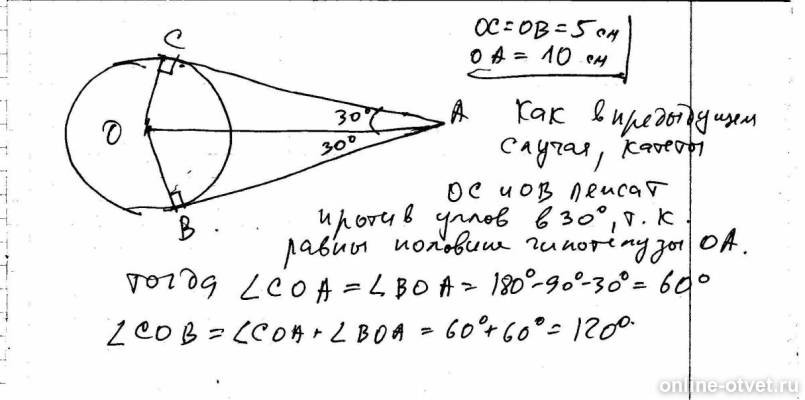 OC=OB=5 см
OA=10 см
C
O
B
A
30°
30°
Как в предыдущем
случая, катеты
OC и OB лежат
против углов в 30°, т.к.
равны половине гипотенузы OA.
тогда ∠COA = ∠BOA = 180°-90°-30° = 60°
∠COB = ∠COA + ∠BOA = 60°+60° = 120°.
online-otvet.ru